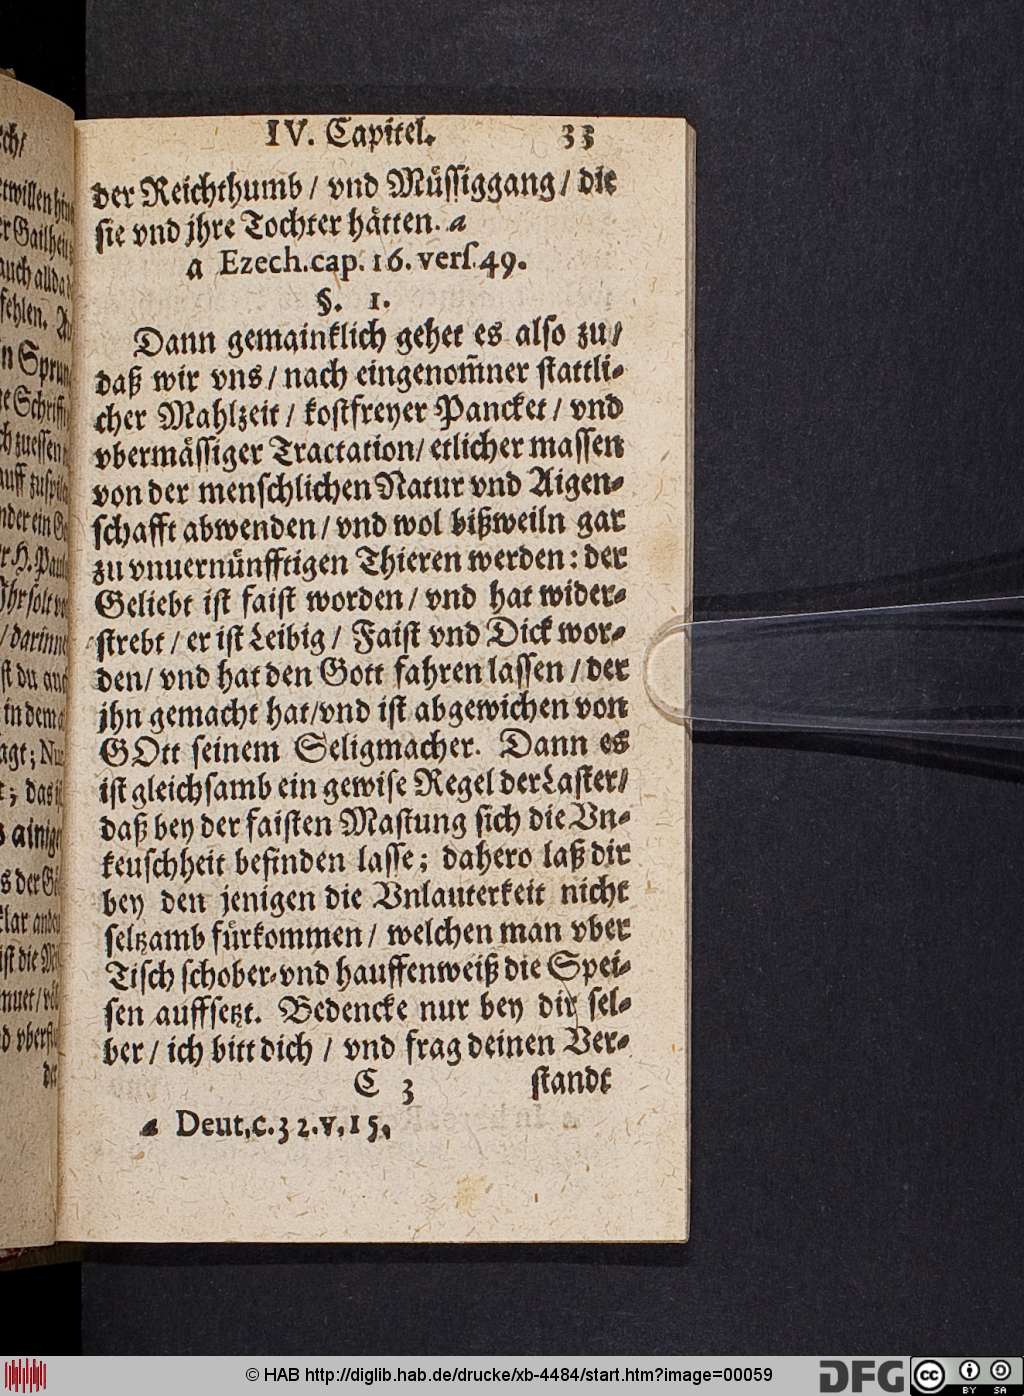 IV. Capitel. 33
der Reichthumb / vnd Müssiggang / die
sie vnd jhre Tochter hätten. a
a Ezech. cap. 16. vers. 49.
§. 1.
Dann gemainklich gehet es also zu /
daß wir vns / nach eingenom̃ner stattli-
cher Mahlzeit / kostfreyer Pancket / vnd
vbermässiger Tractation / etlicher massen
von der menschlichen Natur vnd Aigen-
schafft abwenden / vnd wol bißweiln gar
zu vnuernünfftigen Thieren werden: der
Geliebt ist faist worden / vnd hat wider-
strebt / er ist Leibig / Faist vnd Dick wor-
den / vnd hat den Gott fahren lassen / der
jhn gemacht hat / vnd ist abgewichen von
GOtt seinem Seligmacher. Dann es
ist gleichsamb ein gewise Regel der Laster /
daß bey der faisten Mastung sich die Vn-
keuschheit befinden lasse; dahero laß dir
bey den jenigen die Vnlauterkeit nicht
seltzamb fürkommen / welchen man vber
Tisch schober- vnd hauffenweiß die Spei-
sen auffsetzt. Bedencke nur bey dir sel-
ber / ich bitt dich / vnd frag deinen Ver-
C 3 standt
a Deut. c. 32. v. 15.
© HAB http://diglib.hab.de/drucke/xb-4484/start.htm?image=00059
DFG cc BY SA